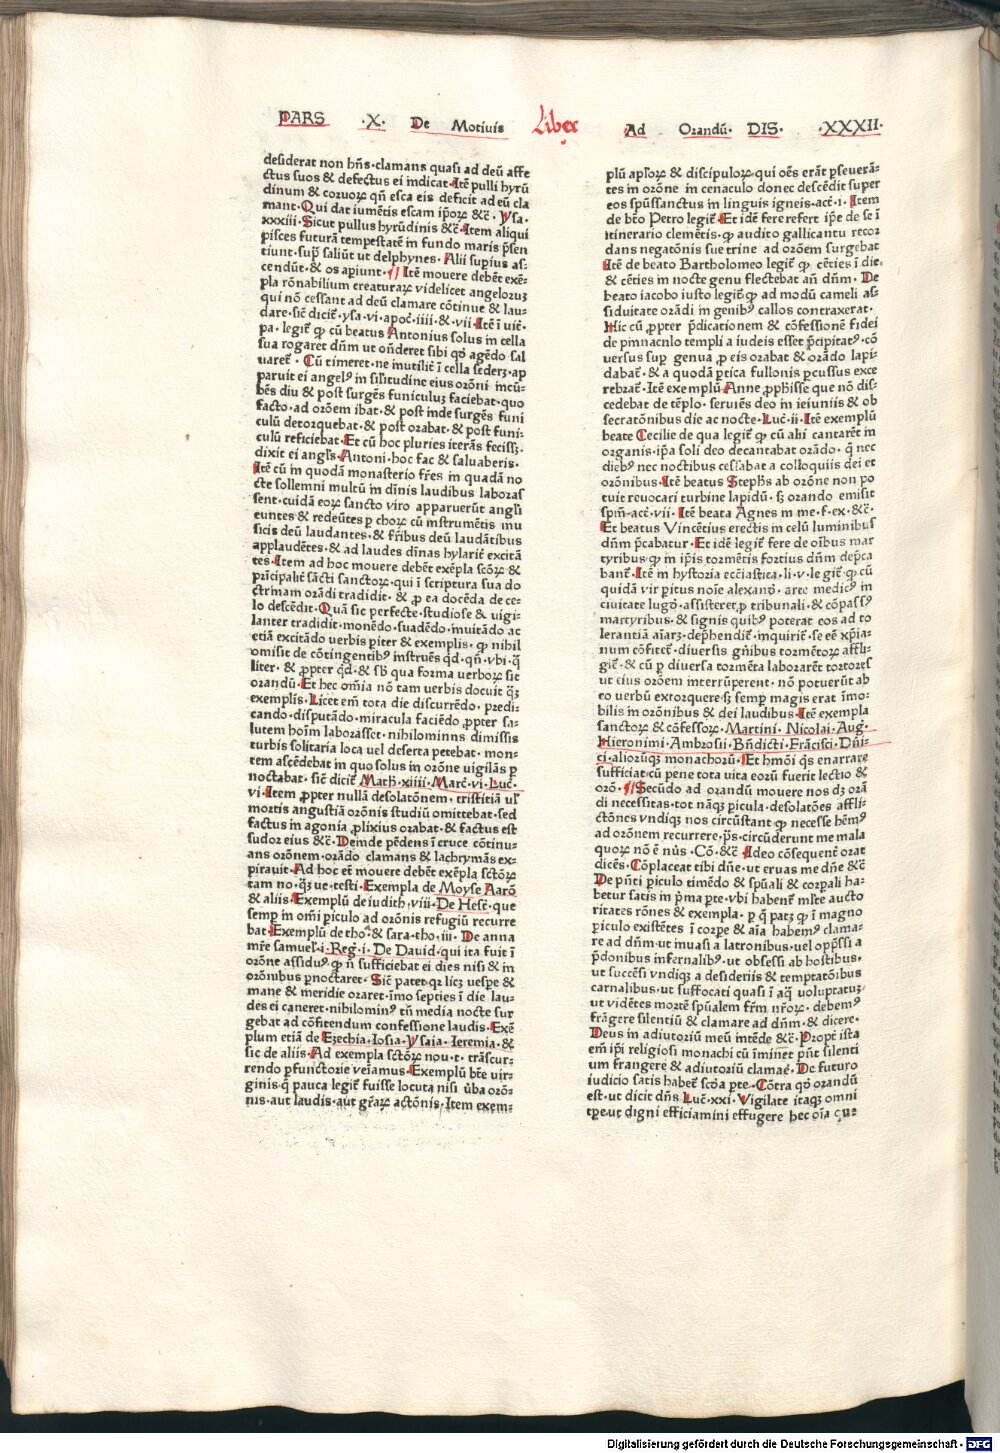 PARS ·X· De Motiuis Liber Ad Orandū· DIS· ·XXXII·
desiderat non hn̄s·clamans quasi ad deū affe
ctus suos & defectus ei indicat·Itē pulli hyrū
dinum & coruoꝝ qn̄ esca eis deficit ad eū cla
mant·Qui dat iumētis escam ip̄oꝝ &c̄· Ysa·
xxxiii·Sicut pullus hyrūdinis &c̄·Item aliqui
pisces futurā tempestatē in fundo maris p̄sen
tiunt·sup̄ saliūt ut delphynes· Alii supius as⸗
cendūt·& os apiunt·¶ Itē mouere debēt exē⸗
pla rōnabilium creaturaꝝ videlicet angeloꝝ
qui nō cessant ad deū clamare cōtinue & lau⸗
dare·sic̄ dicit̄·ysa·vi·apoc̄·iiii·& vii·Itē ī vit̄·
pa·legit̄ ꝙ cū beatus Antonius solus in cella
sua rogaret dn̄m ut on̄deret sibi qd̓ agēdo sal
uaret̄· Cū timeret·ne inutilit̄ ī cella sederꝫ·ap
paruit ei angelꝰ in silitudine eius orōni incū⸗
bēs diu & post surgēs funiculuꝫ faciebat·quo
facto·ad orōem ibat·& post inde surgēs funi
culū detorquebat·& post orabat·& post funi⸗
culū reficiebat·Et cū hoc pluries iterās fecisꝫ·
dixit ei angl̄s·Antoni·hoc fac & saluaberis·
Itē cū in quodā monasterio fr̄es in quadā no
cte sollemni multū in diīnis laudibus laboras
sent·cuidā eoꝝ sancto viro apparuerūt angl̄i
euntes & redeūtes p choꝝ cū instrumētis mu
sicis deū laudantes·& fr̄ibus deū laudātibus
applaudētes·& ad laudes diīnas hylarit̄ excitā
tes·Item ad hoc mouere debēt exēpla scōꝝ &
prīcipalit̄ sācti sanctoꝝ·qui ī scriptura sua do
ctrinam orādi tradidit·& ꝓ ea docēda de ce⸗
lo descēdit·Quā sic perfecte·studiose & uigi⸗
lanter tradidit·monēdo·suadēdo·inuitādo ac
etiā excitādo verbis piter & exemplis·ꝙ nihil
omisit de cōtingentibꝰ instruēs qd·qn̄·vbi·qͣ
liter·& ꝓpter qd·& sb̄ qua forma verboꝝ sit
orandū·Et hec om̄ia nō tam verbis docuit qͣꝫ
exemplis·Licet em̄ tota die discurrēdo·predi⸗
cando·disputādo·miracula faciēdo ꝓpter sa⸗
lutem hoīm laborasset·nihilominus dimissis
turbis solitaria loca uel deserta petebat·mon⸗
tem ascēdebat in quo solus in orōne uigilās p
noctabat·sic̄ dicit̄ Math·xiiii·Marc̄·vi·Luc̄·
vi·Item ꝓpter nullā desolatōnem·tristitiā ul̄
mortis angustiā orōnis studiū omittebat·sed
factus in agonia ꝓlixius orabat·& factus est
sudor eius &c̄·Deinde pēdens ī cruce cōtinu⸗
ans orōnem·orādo clamans & lachrymās ex⸗
pirauit·Ad hoc et̄ mouere debēt exēpla sctōꝝ
tam no·qͣꝫ ue·testi·Exempla de Moyse Aarō
& aliis·Exemplū de iudith·viii·De Hest̄·que
semp̄ in om̄i piculo ad orōnis refugiū recurre
bat·Exemplū de tho·& sara·tho·iii· De anna
mr̄e samuel·i·Reg·i·De Dauid·qui ita fuit ī
orōne assiduꝰ ꝙ n̄ sufficiebat ei dies nisi & in
orōnibus pnoctaret·Sic̄ patet·qꝛ licꝫ uespe &
mane & meridie oraret·īmo septies ī die lau⸗
des ei caneret·nihilominꝰ tn̄ media nocte sur
gebat ad cōfitendum confessione laudis·Exē
plum etiā de Ezechia·Iosia·Ysaia·Ieremia·&
sic de aliis·Ad exempla sctōꝝ nou·t·trāscur⸗
rendo pfunctorie veiamus·Exemplū bt̄e vir⸗
ginis·ꝙ pauca legit̄ fuisse locuta nisi ūba orō⸗
nis·aut laudis·aut gr̄aꝝ actōnis·Item exem⸗
plū apl̄oꝝ & discipuloꝝ·qui oēs erāt pseuerā⸗
tes in orōne in cenaculo donec descēdit super
eos sp̄ussanctus in linguis igneis·act̄·i·Item
de bt̄o Petro legit̄·Et idē fere refert ip̄e de se ī
itinerario clemētis·ꝙ audito gallicantu recor
dans negatōnis sue trine ad orōem surgebat
Itē de beato Bartholomeo legit̄ ꝙ cēties ī die
& cēties in nocte genu flectebat añ dn̄m· De
beato iacobo iusto legit̄ ꝙ ad modū cameli as⸗
siduitate orādi in genibꝰ callos contraxerat·
Hic cū ꝓpter p̄dicationem & cōfessionē fidei
de pinnaculo templi a iudeis esset p̄cipitatꝰ·cō
uersus sup̄ genua ꝓ eis orabat & orādo lapi⸗
dabat̄·& a quodā ptica fullonis pcussus exce
rebrat̄·Itē exemplū Anne ꝓph̄isse que nō dis⸗
cedebat de tēplo·seruiēs deo in ieiuniis & ob
secratōnibus die ac nocte·Luc̄·ii·Itē exemplū
beate Cecilie de qua legit̄ ꝙ cū alii cantarēt in
organis·ip̄a soli deo decantabat orādo·qͣ nec
diebꝰ nec noctibus cessabat a colloquiis dei et
orōnibus·Itē beatus Steph̄s ab orōne non po
tuit reuocari turbine lapidū·sꝫ orando emisit
spm̄·act̄·vii·Itē beata Agnes in me·f·ex·&c̄·
Et beatus Vincētius erectis in celū luminibus
dn̄m p̄cabatur·Et idē legit̄ fere de oībus mar
tyribus·ꝙ in ip̄is tormētis fortius dn̄m dep̄ca
bant̄·Itē in hystoria ecc̄iastica·li·v·legit̄·ꝙ cū
quidā vir pitus noīe alexand̓·arte medicꝰ in
ciuitate lugd̓·assisteret·p tribunali·& cōpassꝰ
martyribus·& signis quibꝰ poterat eos ad to
lerantiā aīarꝫ·dep̄hendit̄·inquirit̄·se eē xp̄ia⸗
num cōfitet̄·diuersis gn̄ibus tormētoꝝ affli⸗
git̄·& cū p diuersa tormēta laborarēt tortores
ut eius orōem interrūperent·nō potuerūt ab
eo verbū extorquere·sꝫ semp̄ magis erat īmo⸗
bilis in orōnibus & dei laudibus·Itē exempla
sanctoꝝ & cōfessoꝝ·Martini· Nicolai·Aug̓·
Hieronimi·Ambrosii·Bn̄dicti·Frācisci·Dn̄i⸗
ci·aliorūqꝫ monachorū·Et hmōi qͥs enarrare
sufficiat·cū pene tota uita eorū fuerit lectio &
orō·¶Secūdo ad orandū mouere nos dꝫ orā
di necessitas·tot nāqꝫ picula·desolatōes affli⸗
ctōnes vndiqꝫ nos circūstant·ꝙ necesse hēmꝰ
ad orōnem recurrere·p̄s·circūderunt me mala
quoꝝ nō ē nūs· Cō·&c̄·Ideo cōsequent̄ orat
dicēs·Cōplaceat tibi dn̄e·ut eruas me dn̄e &c̄
De pn̄ti piculo timēdo & spūali & corpali ha⸗
betur satis in p̄ma pte·vbi habent̄ ml̄te aucto
ritates rōnes & exempla·p qͣ patꝫ ꝙ ī magno
piculo existētes ī corpe & aīa habemꝰ clama⸗
re ad dn̄m·ut inuasi a latronibus·uel opp̄ssi a
p̄donibus infernalibꝰ·ut obsessi ab hostibus·
ut succēsi vndiqꝫ a desideriis & temptatōibus
carnalibus·ut suffocati quasi ī aqͣ uoluptatuꝫ·
ut vidētes mortē spūalem fr̄m nr̄oꝝ·debemꝰ
frāgere silentiū & clamare ad dn̄m·& dicere·
Deus in adiutoriū meū intēde &c̄·Propt̄ ista
em̄ ip̄i religiosi monachi cū īminet pn̄t silenti
um frangere & adiutoriū clamar̄·De futuro
iudicio satis habet̄ scda pte·Cōtra qd̓ orandū
est·ut dicit dn̄s Luc̄·xxi·Vigilate itaqꝫ omni
tpe·ut digni efficiamini effugere hec oīa qu⸗
Digitalisierung gefördert durch die Deutsche Forschungsgemeinschaft - DFG